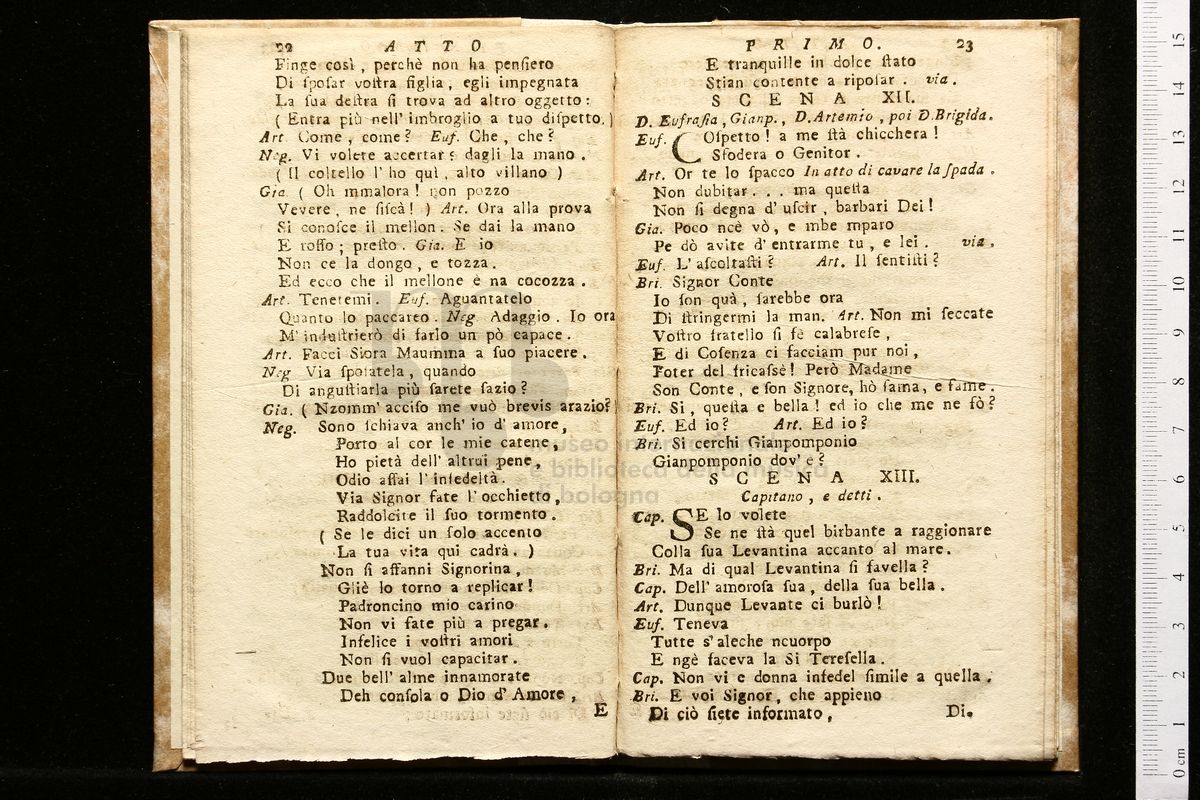 22 ATTO
Finge così, perchè non ha penſiero
Di ſpoſar voſtra figlia, egli impegnata
La ſua deſtra ſi trova ad altro oggetto:
(Entra più nell' imbroglio a tuo diſpetto.)
Art Come, come? Euf. Che, che?
Neg. Vi volete accertar? dagli la mano.
(Il coltello l' ho quì, alto villano)
Gia. (Oh mmalora! non pozzo
Vevere, ne ſiſcà!) Art. Ora alla prova
Si conoſce il mellon. Se dai la mano
E roſſo; preſto. Gia. E io
Non ce la dongo, e tozza.
Ed ecco che il mellone è na cocozza.
Art. Tenetemi. Euf. Aguantatelo
Quanto lo paccareo. Neg Adaggio. Io ora
M' induſtrierò di farlo un pò capace.
Art. Facci Siora Maumma a ſuo piacere.
Neg Via ſpoſatela, quando
Di anguſtiarla più ſarete ſazio?
Gia. (Nzomm' acciſo me vuò brevis arazio?)
Neg. Sono ſchiava anch' io d' amore,
Porto al cor le mie catene,
Ho pietà dell' altrui pene,
Odio aſſai l' infedeltà.
Via Signor fate l' occhietto,
Raddolcite il ſuo tormento.
(Se le dici un ſolo accento
La tua vita qui cadrà.)
Non ſi affanni Signorina,
Gliè lo torno a replicar!
Padroncino mio carino
Non vi fate più a pregar.
Infelice i voſtri amori
Non ſi vuol capacitar.
Due bell' alme innamorate
Deh conſola o Dio d' Amore,
E
PRIMO. 23
E tranquille in dolce ſtato
Stian contente a ripoſar. via.
SCENA XII.
D. Eufraſia, Gianp., D. Artemio, poi D. Brigida.
Euf. COſpetto! a me ſtà chicchera!
Sfodera o Genitor.
Art. Or te lo ſpacco In atto di cavare la ſpada.
Non dubitar... ma queſta
Non ſi degna d' uſcir, barbari Dei!
Gia. Poco ncè vò, e mbe mparo
Pe dò avite d' entrarme tu, e lei. via.
Euf. L' aſcoltaſti? Art. Il ſentiſti?
Bri. Signor Conte
Io ſon quà, ſarebbe ora
Di ſtringermi la man. Art. Non mi ſeccate
Voſtro fratello ſi fè calabreſe,
E di Coſenza ci facciam pur noi,
Poter del fricaſsè! Però Madame
Son Conte, e ſon Signore, hò fama, e fame.
Bri. Si, queſta e bella! ed io che me ne fò?
Euf. Ed io? Art. Ed io?
Bri. Si cerchi Gianpomponio
Gianpomponio dov' e?
SCENA XIII.
Capitano, e detti.
Cap. SE lo volete
Se ne ſtà quel birbante a raggionare
Colla ſua Levantina accanto al mare.
Bri. Ma di qual Levantina ſi favella?
Cap. Dell' amoroſa ſua, della ſua bella.
Art. Dunque Levante ci burlò!
Euf. Teneva
Tutte s' aleche ncuorpo
E ngè faceva la Si Tereſella.
Cap. Non vi e donna infedel ſimile a quella.
Bri. E voi Signor, che appieno
Di ciò ſiete informato,
Di.
museo internazionale
e biblioteca della musica
di bologna
0 cm 1 2 3 4 5 6 7 8 9 10 11 12 13 14 15